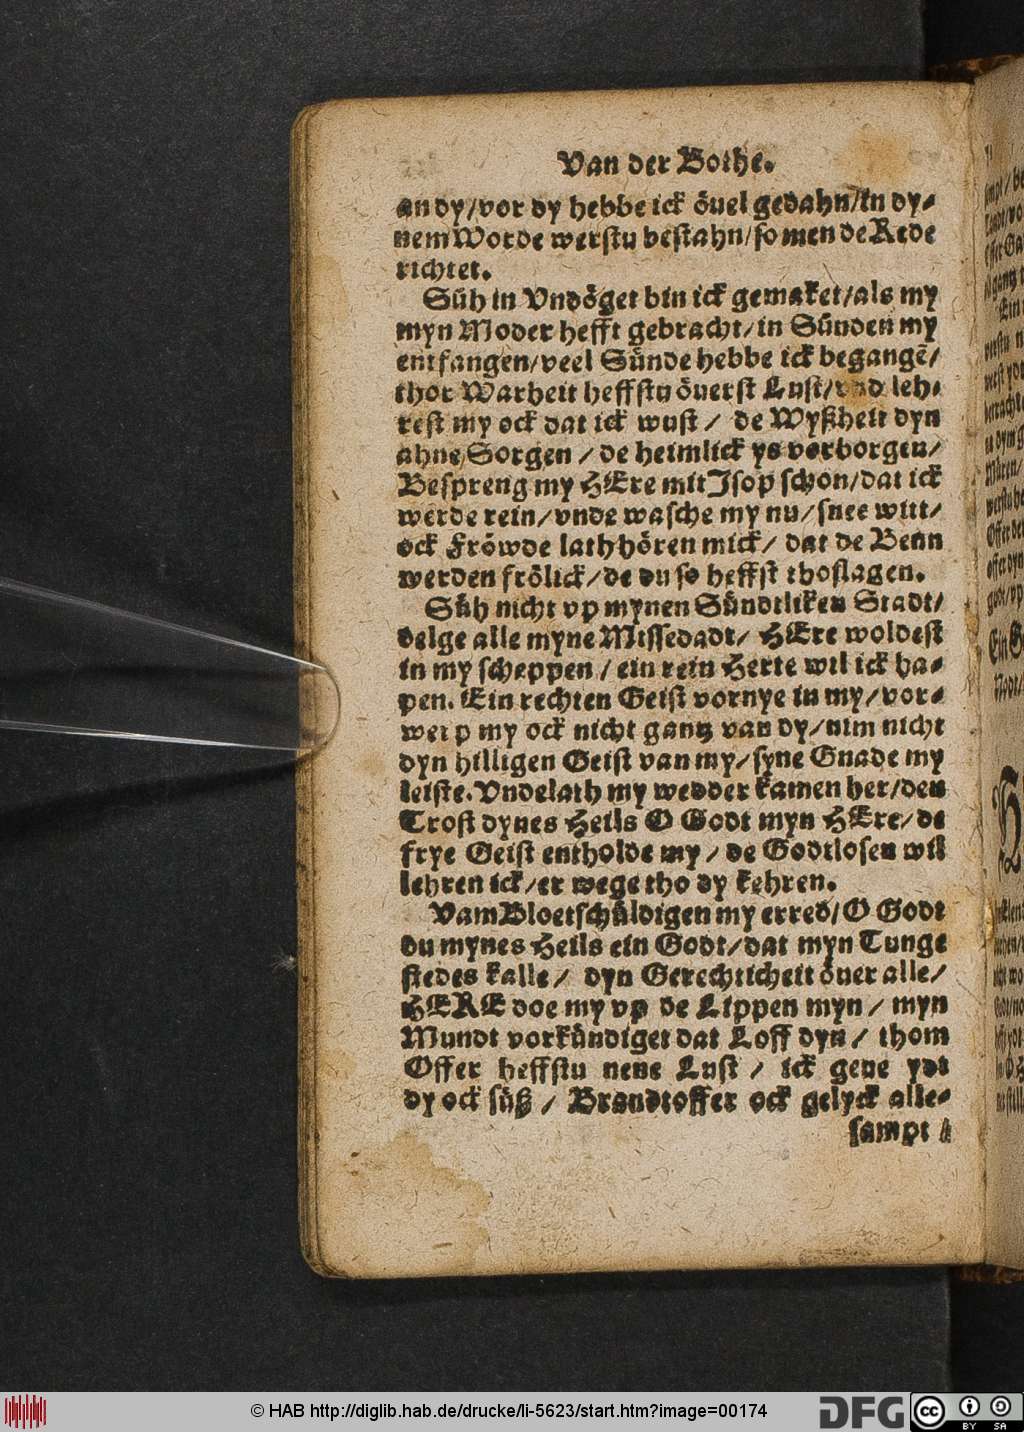 Van der Bothe.
an dy/vor dy hebbe ick öuel gedahn/in dy-
nem Worde werstu bestahn/so men de Rede
richtet.
Süh in Vndöget bin ick gemaket/als my
myn Moder hefft gebracht/in Sünden my
entfangen/veel Sünde hebbe ick begangē/
thor Warheit heffstu öuerst Lust/vnd leh-
rest my ock dat ick wust / de Wyßheit dyn
ahne Sorgen / de heimlick ys vorborgen/
Bespreng my HEre mit Isop schon/dat ick
werde rein/vnde wasche my nu/snee witt/
ock Fröwde lath hören mick/ dat de Benn
werden frölick/de du so heffst thoslagen.
Süh nicht vp mynen Sündtliken Stadt/
delge alle myne Missedadt/ HEre woldest
in my scheppen / ein rein Herte wil ick ha-
pen. Ein rechten Geist vornye in my/vor-
werp my ock nicht gantz van dy/nim nicht
dyn hilligen Geist van my/syne Gnade my
leiste. Vnde lath my wedder kamen her/den
Trost dynes Heils O Godt myn HEre/de
frye Geist entholde my / de Godtlosen wil
lehren ick/er wege tho dy kehren.
Vam Bloetschüldigen my erred/O Godt
du mynes Heils ein Godt/dat myn Tunge
stedes kalle / dyn Gerechticheit öuer alle/
HERE doe my vp de Lippen myn / myn
Mundt vorkündiget dat Loff dyn / thom
Offer heffstu nene Lust / ick geue ydt
dy ock süß / Brandtoffer ock gelyck alle-
sampt
© HAB http://diglib.hab.de/drucke/li-5623/start.htm?image=00174
DFG
cc
BY SA